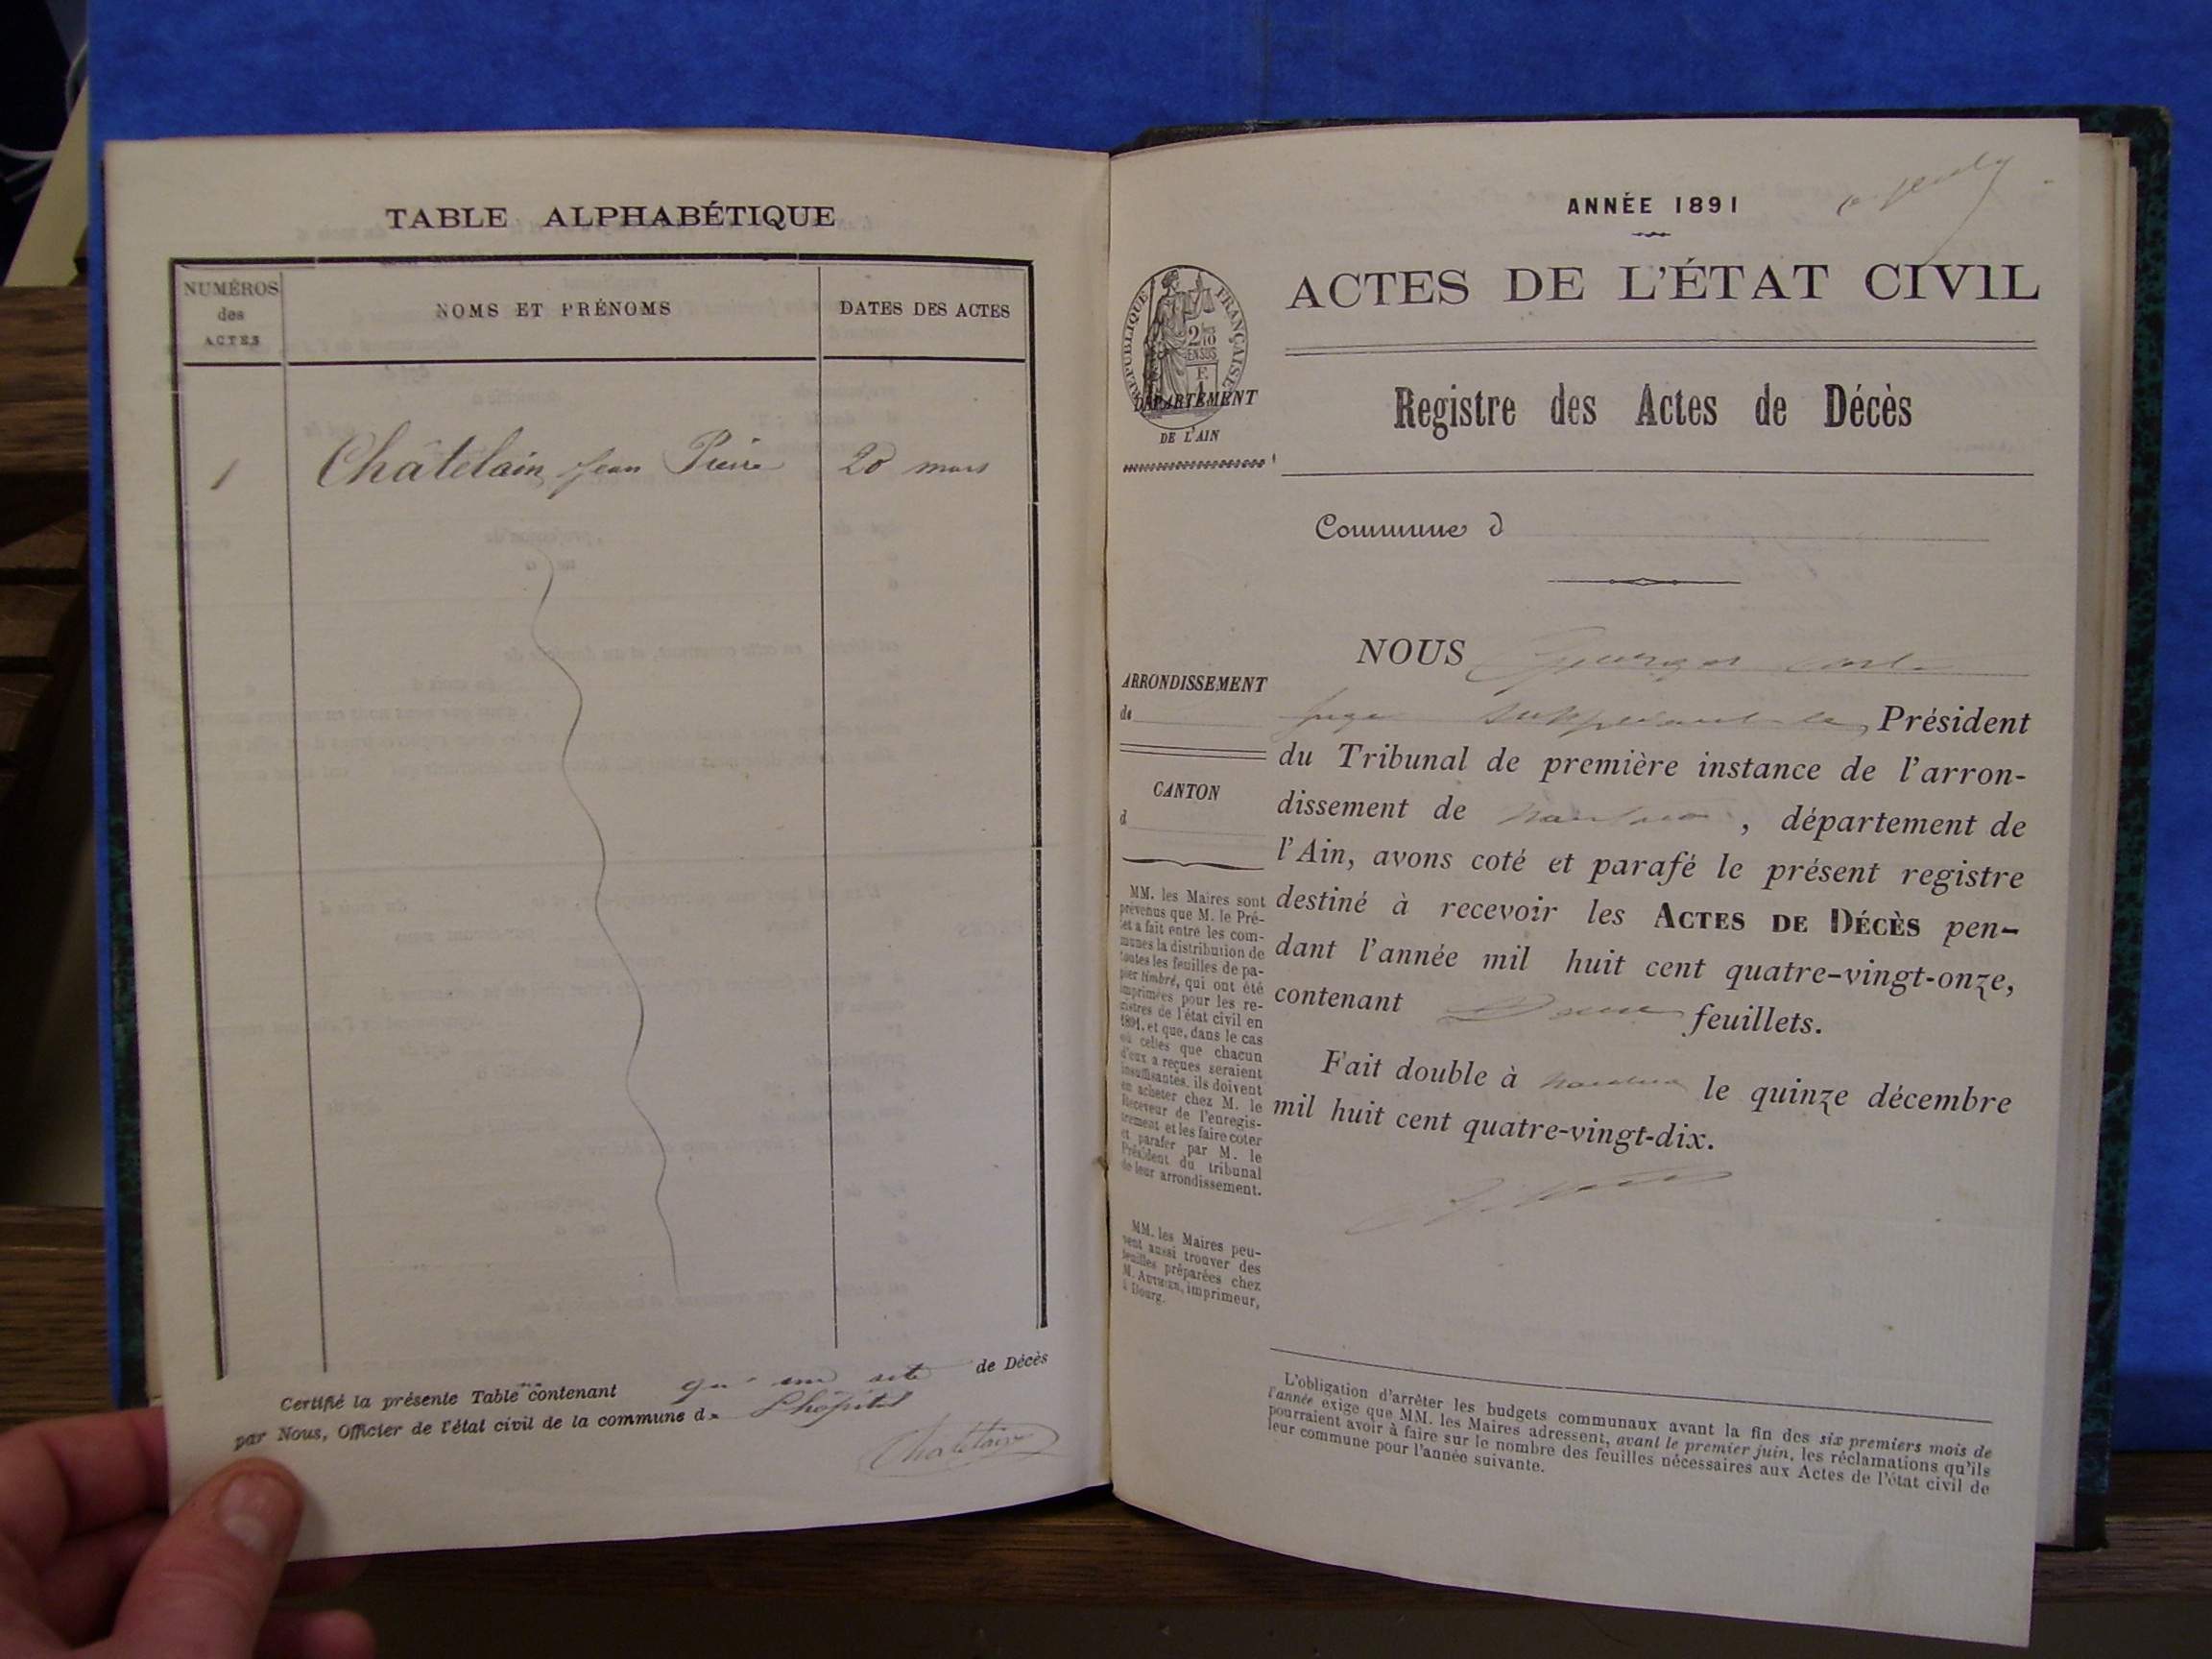 TABLE ALPHABÉTIQUE
NUMÉROS
des
ACTES
NOMS ET PRÉNOMS
DATES DES ACTES
1
Châtelain Jean Pierre
20 mars
Certifié la présente Table contenant qu'un acte de Décès
par Nous, Officier de l'état civil de la commune de Lhôpital
Chatelain
ANNÉE 1891
ACTES DE L'ÉTAT CIVIL
RÉPUBLIQUE FRANÇAISE
DÉPARTEMENT
DE L'AIN
Registre des Actes de Décès
Commune d
ARRONDISSEMENT
de
CANTON
d
MM. les Maires sont
prévenus que M. le Pré-
fet a fait entre les com-
munes la distribution de
toutes les feuilles de pa-
pier timbré, qui ont été
imprimées pour les re-
gistres de l'état civil en
1891, et que, dans le cas
où celles que chacun
d'eux a reçues seraient
insuffisantes, ils doivent
en acheter chez M. le
Receveur de l'enregis-
trement et les faire coter
et parafer par M. le
Président du tribunal
de leur arrondissement.
MM. les Maires peu-
vent aussi trouver des
feuilles préparées chez
M. AUTHIER, imprimeur,
à Bourg.
NOUS
juge suppléant le Président
du Tribunal de première instance de l'arron-
dissement de Nantua, département de
l'Ain, avons coté et parafé le présent registre
destiné à recevoir les ACTES DE DÉCÈS pen-
dant l'année mil huit cent quatre-vingt-onze,
contenant feuillets.
Fait double à Nantua le quinze décembre
mil huit cent quatre-vingt-dix.
L'obligation d'arrêter les budgets communaux avant la fin des six premiers mois de
l'année exige que MM. les Maires adressent, avant le premier juin, les réclamations qu'ils
pourraient avoir à faire sur le nombre des feuilles nécessaires aux Actes de l'état civil de
leur commune pour l'année suivante.